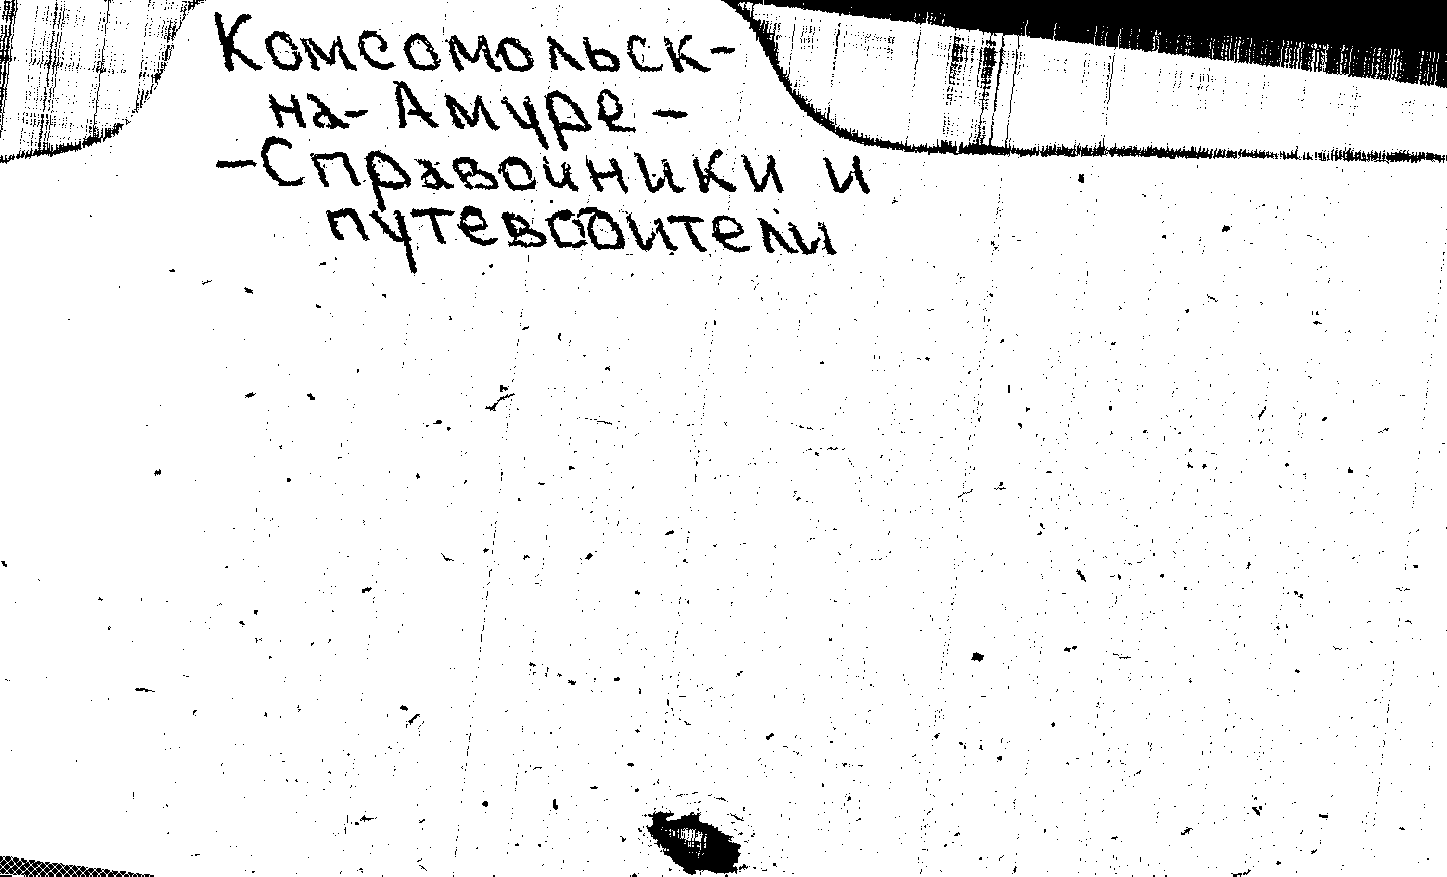 Комсомольск-
на-Амуре -
- Справочники и
путеводители